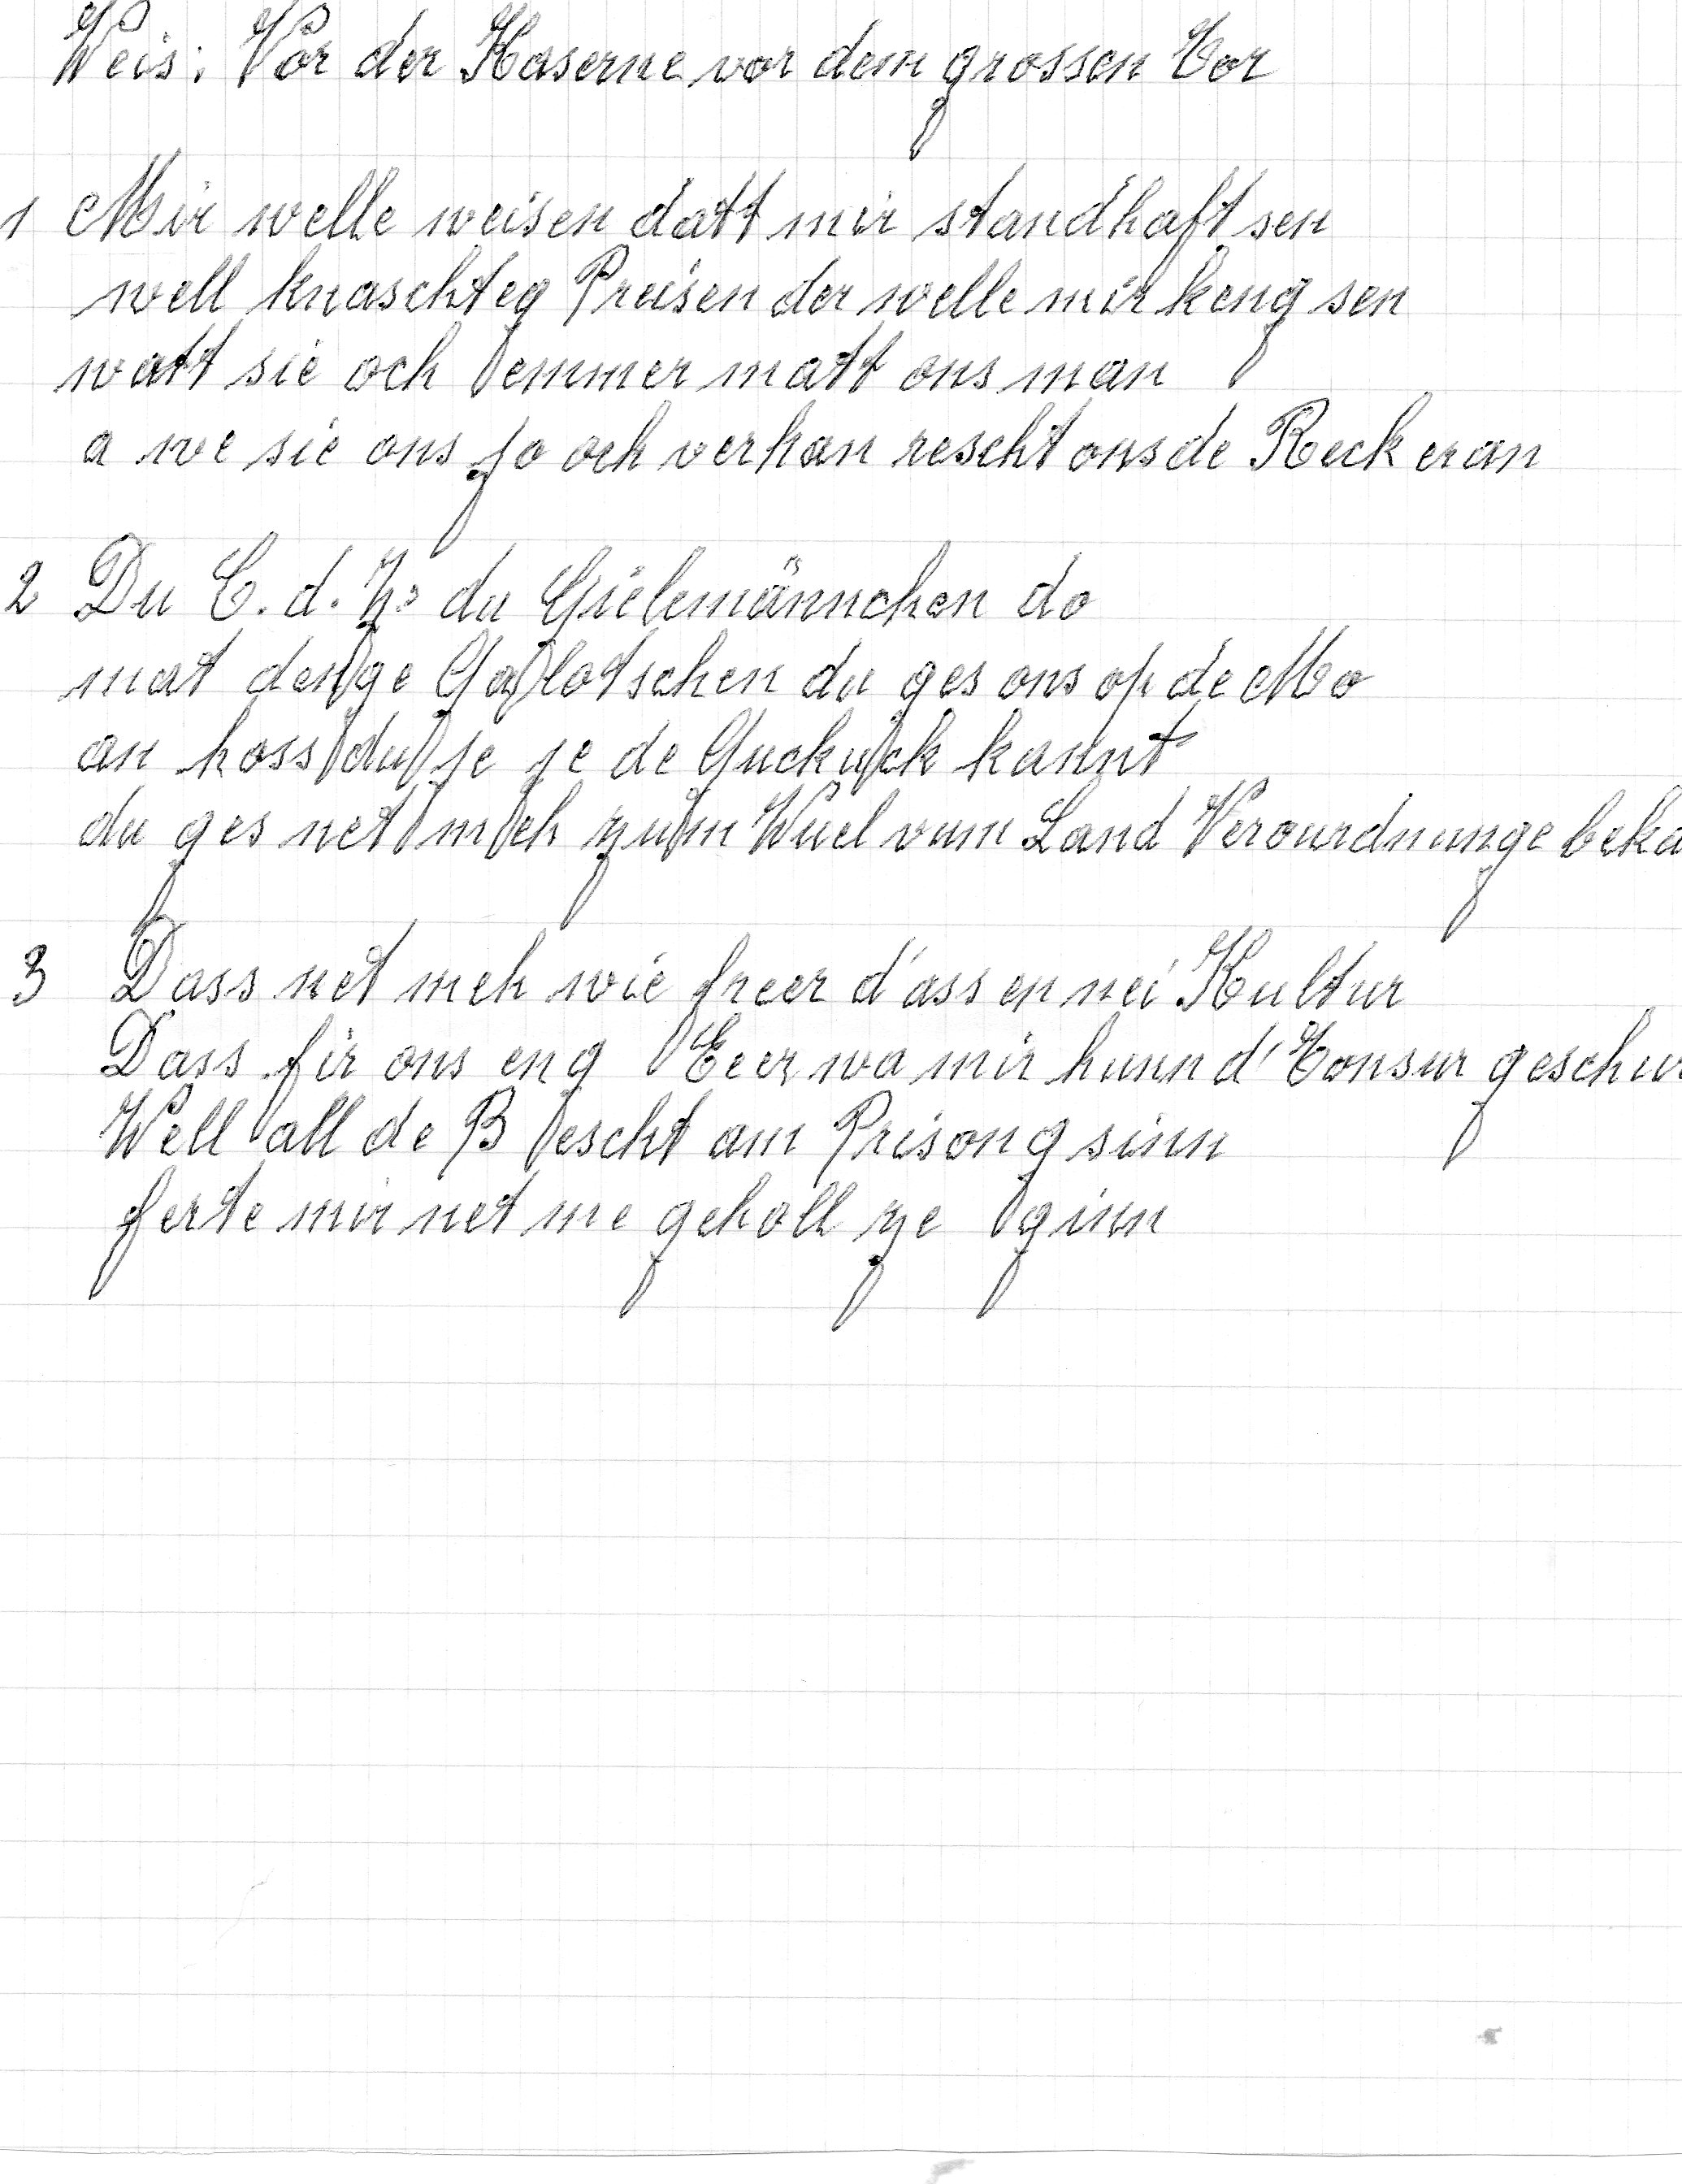 Weis: Vor der Kaserne vor dem grossen Tor
1 Mir welle weisen datt mir standhaft sen
well knaschteg Preisen der welle mir keng sen
watt sie och emmer matt ons man
a we sie ons jo och verhan rescht ons de Reck eran
2 Du C. d. Z. du Gielemännchen do
mat denge Galotschen du ges ons op de Mo
an hoss du je je de Guckuck kannt
du ges net meh zum Wuel vum Land Verourdnunge beka
3 Dass net meh wie freer d'ass en nei Kultur
Dass fir ons eng Eer wa mir hunn d'Tonsur geschur
Well all de Bescht am Prisong sinn
ferte mir net me geholl ze ginn